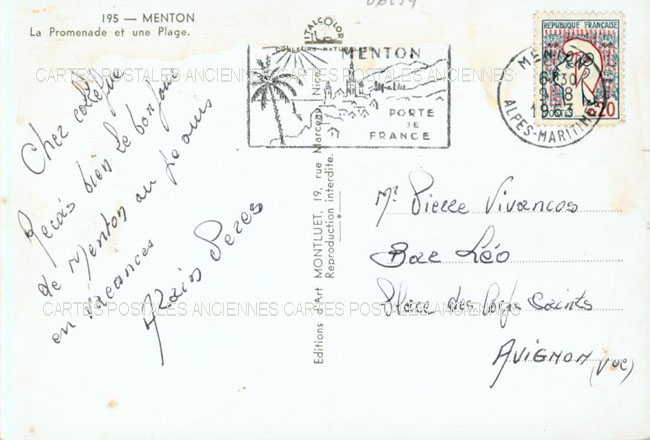 195 — MENTON
La Promenade et une Plage.
Chez collègue
Reçois bien le bonjour
de Menton ou je suis
en vacances
Alain Peres
Editions d'Art MONTLUET, 19, rue Marceau, Nice
Reproduction interdite.
ITALCOLOR
COULEURS NATURELLES
MENTON
PORTE
DE
FRANCE
MENTON
6H30
9-8
1963
ALPES-MARITIMES
REPUBLIQUE FRANÇAISE
POSTES
0,20
Mr Pierre Vivancos
Bar Léo
Place des Corps Saints
AVIGNON (Vse)
CARTES POSTALES ANCIENNES CARTES POSTALES ANCIENNES
CARTES POSTALES ANCIENNES CARTES POSTALES ANCIENNES